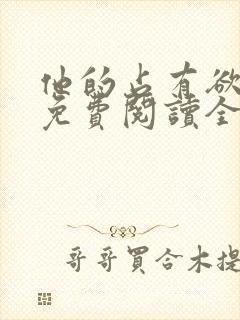 他的占有欲
免費閱讀全
哥哥買合木提